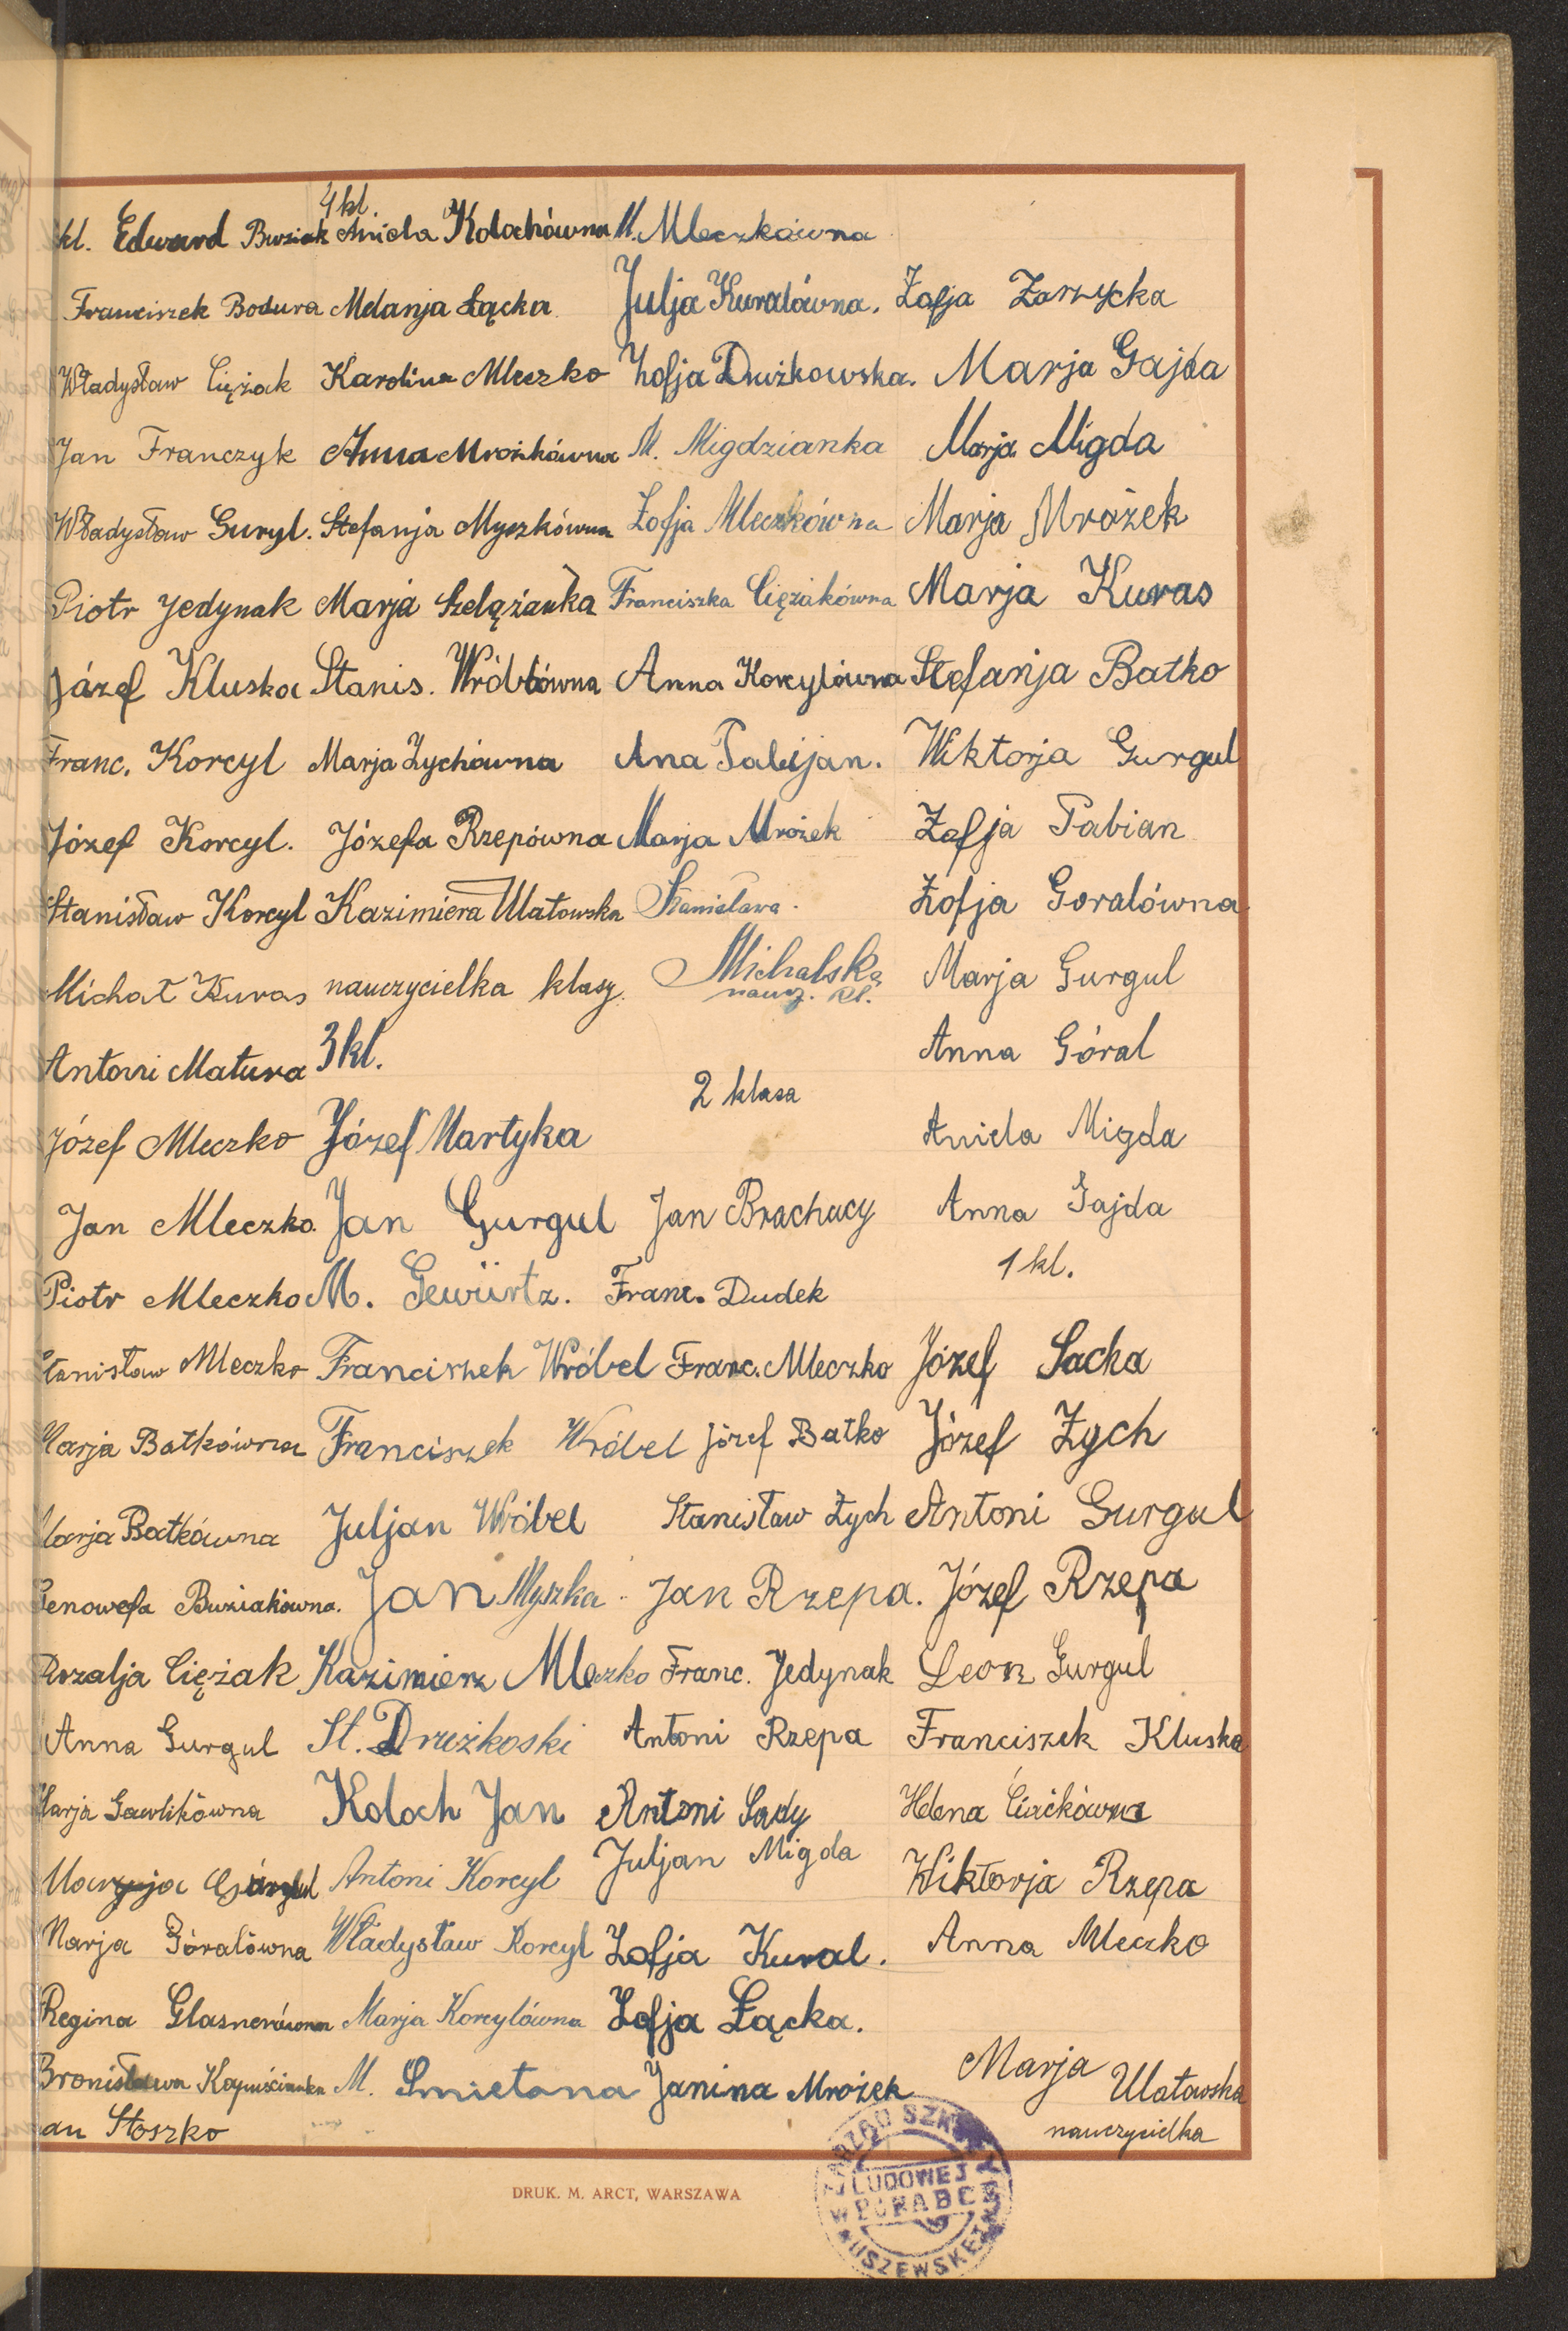 kl. Edward Buziak
Franciszek Bodura
Władysław Ciężak
Jan Franczyk
Władysław Guryl.
Piotr Jedynak
Józef Kluska
Franc. Korcyl
Józef Korcyl.
Stanisław Korcyl
Michał Kuras
Antoni Matura
Józef Mleczko
Jan Mleczko.
Piotr Mleczko
Stanisław Mleczko
Marja Batkówna
Marja Batkówna
Genowefa Buziakówna.
Rozalja Ciężak
Anna Gurgul
Marja Gawlikówna
Marja Gurgul
Marja Góralówna
Regina Glasnerówna
Bronisława
an Stoszko
4 kl.
Aniela Kołochówna
Melanja Łącka
Karolina Mleczko
Anna Mrożkówna
Stefanja Myszkówna
Marja Szelążanka
Stanis. Wróblówna
Marja Zychówna
Józefa Rzepówna
Kazimiera Ulatowska
nauczycielka klasy.
3 kl.
Józef Martyka
Jan Gurgul
M. Gewürtz.
Franciszek Wróbel
Franciszek Wróbel
Juljan Wróbel
Jan Myszka
Kazimierz Mleczko
St. Drużkoski
Koloch Jan
Antoni Korcyl
Władysław Korcyl
Marja Korcylówna
M. Smietana
M. Mleczkówna
Julja Kuralówna.
Zofja Drużkowska.
M. Migdzianka
Zofja Mleczkówna
Franciszka Ciężakówna
Anna Korcylówna
Ana Pabijan.
Marja Mrożek
Stanisława
Michalska
naucz. kl.
2 klasa
Jan Brachucy
Franc. Dudek
Franc. Mleczko
Józef Batko
Stanisław Zych
Jan Rzepa.
Franc. Jedynak
Antoni Rzepa
Antoni Sady
Juljan Migda
Zofja Kural.
Zofja Łącka.
Janina Mrożek
Zofja Zarzycka
Marja Gajda
Marja Migda
Marja Mrożek
Marja Kuras
Stefanja Batko
Wiktorja Gurgul
Zofja Pabian
Zofja Goralówna
Marja Gurgul
Anna Góral
Aniela Migda
Anna Gajda
1 kl.
Józef Sacha
Józef Zych
Antoni Gurgul
Józef Rzepa
Leon Gurgul
Franciszek Kluska
Helena Ciaćkówna
Wiktorja Rzepa
Anna Mleczko
Marja Ulatowska
nauczycielka
DRUK. M. ARCT, WARSZAWA
ZARZĄD SZKOŁY
LUDOWEJ
W PORĄBCE
USZEWSKIEJ